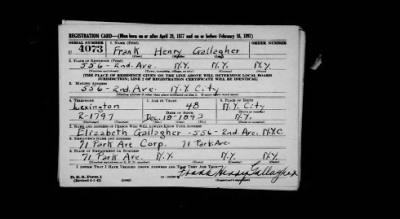 REGISTRATION CARD—(Men born on or after April 28, 1877 and on or before February 16, 1897)
SERIAL NUMBER 1. NAME (Print) ORDER NUMBER
4073 Frank Henry Gallagher
2. PLACE OF RESIDENCE (Print)
556 - 2nd Ave. N.Y. N.Y.
(THE PLACE OF RESIDENCE GIVEN ON THE LINE ABOVE WILL DETERMINE LOCAL BOARD
JURISDICTION; LINE 2 OF REGISTRATION CERTIFICATE WILL BE IDENTICAL)
3. MAILING ADDRESS
556 - 2nd Ave. N.Y. City
4. TELEPHONE 5. AGE IN YEARS 6. PLACE OF BIRTH
Lexington 48 N.Y. City
DATE OF BIRTH
R-1797 Dec. 18 1893 N.Y.
7. NAME AND ADDRESS OF PERSON WHO WILL ALWAYS KNOW YOUR ADDRESS
Elizabeth Gallagher - 556 - 2nd Ave. N.Y.C.
8. EMPLOYER'S NAME AND ADDRESS
71 Park Ave Corp. 71 Park Ave
9. PLACE OF EMPLOYMENT OR BUSINESS
71 Park Ave. N.Y. N.Y.
I AFFIRM THAT I HAVE VERIFIED ABOVE ANSWERS AND THAT THEY ARE TRUE.
D. S. S. Form 1
(Revised 4-1-42)
Frank Henry Gallagher